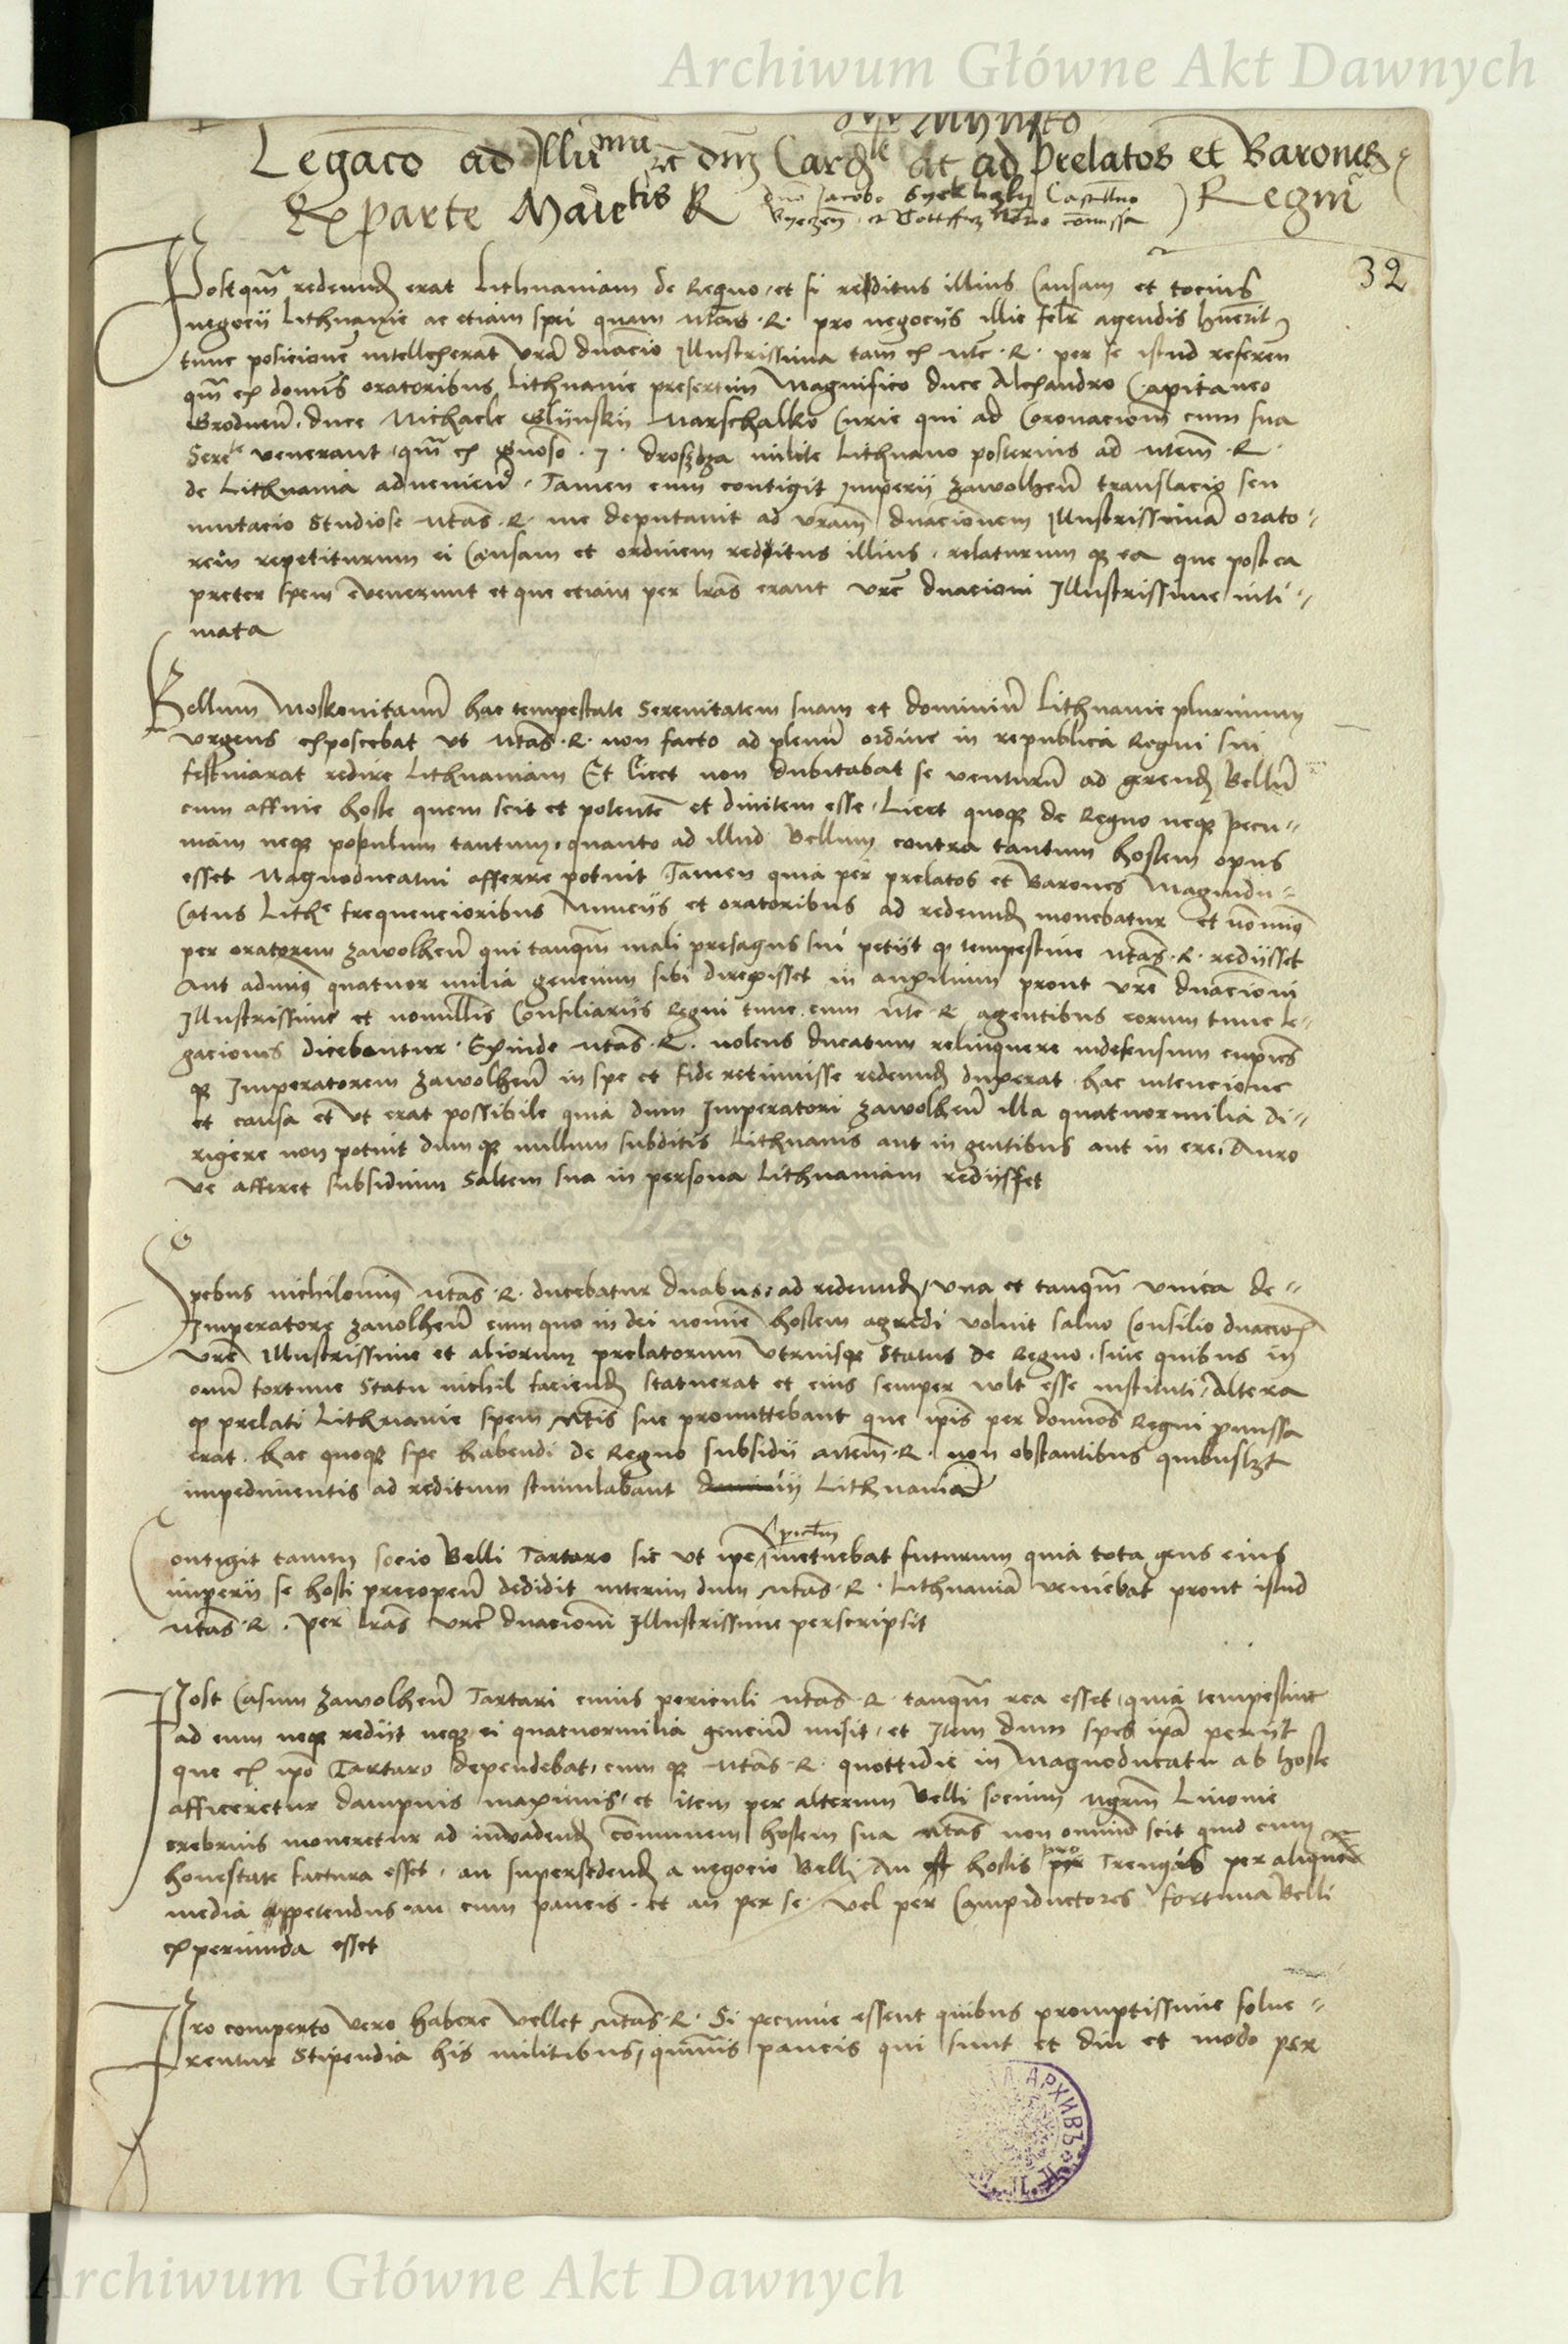 Archiwum Główne Akt Dawnych
Legaco ad Illumu etc dnm Cardle ac ad prelatos et Barones
Ex parte Maietis R dno Jacobo Syeklyczky Castllno Regni
32
Postqm redeund erat Lithuaniam de Regno et si redditus illius Causam et tocius
negocii Lithuanie ac etiam spei quam Mtas R pro negociis illic felr agendis hnerit
tunc posicione intellexerat vra dnacio Illustrissima tam ex Mte R per se istud referen
qm ex domis oratoribus Lithuanie presertim Magnifico duce Alexandro Capitaneo
Grodnen duce Michaele Glijnskij Marschalko Curie qui ad Coronacionem cum sua
Serte venerant qm ex Gnoso J drosdza milite Lithuano posterius ad Mtem R
de Lithuania advenien Tamen cum contigit Imperii zawolhen translacio seu
mutacio Studiose Mtas R me deputavit ad vram dnacionem Illustrissima orato-
rem repetiturum ei Causam et ordinem redditus illius relaturum q ea que post ea
preter spem evenerunt et que etiam per lras erant vre dnacioni Illustrissime inti-
mata
Bellum Moskovitanu hac tempestate Serenitatem suam et dominiu Lithuanie plurimum
urgens exposcebat ut Mtas R non facto ad plenu ordine in republica Regni sui
festinarat redire Lithuaniam Et licet non dubitabat se venturu ad gerend Bellu
cum affine hoste quem scit et potente et divitem esse Licet quoq de Regno neq pecu-
niam neq populum tantum quanto ad illud Bellum contra tantum hostem opus
esset Magnoducatui afferre potuit Tamen quia per prelatos et Barones Magnidu-
Catus Lithe frequencioribus Nunciis et oratoribus ad redeund monebatur et nomin
per oratorem zawolhen qui tanqm mali presagus sui petiit q tempestive Mtas R rediisset
Aut adminus quatuor milia gencium sibi direxisset in auxilium prout vre dnacioni
Illustrissime et nonnullis Consiliariis Regni tunc cum Mte R agentibus eorum tunc le-
gaciones dicebantur Exinde Mtas R nolens ducatum relinquere indefensum cupiens
q Imperatorem zawolhen in spe et fide retinuisse redeund duxerat hac intencione
et causa et ut erat possibile quia dum Imperatori zawolhen illa quatuormilia di-
rigere non potuit dum q nullum subditis Lithuanis aut in gentibus aut in ere Auro
ve afferet subsidium Saltem sua in persona Lithuaniam rediisset
Spebus nichilomin Mtas R ducebatur duabus ad redeund Una et tanqm unica de
Imperatore zawolhen cum quo in dei nomine hostem agredi voluit salvo Consilio dnacion
vre Illustrissime et aliorum prelatorum utriusq Status de Regno sine quibus in
omi fortune Statu nichil faciend statuerat et eius semper vult esse instituti Altera
q prelati Lithuanie spem Mtis sue promittebant que ipis per domos Regni pmissa
erat hac quoq spe habendi de Regno subsidii Mtem R non obstantibus quibuslzt
impedimentis ad reditum stimulabant Lithuania
Contigit tamen socio Belli Tartaro sic ut ipe metuebat futurum quia tota gens eius
imperii se hosti precopen dedidit interim dum Mtas R Lithuania veniebat prout istud
Mtas R per lras vre dnacioni Illustrissime perscripsit
Post Casum zawolhen Tartari cuius periculi Mtas R tanqm rea esset quia tempestive
ad eum neq rediit neq ei quatuormilia genciu misit et Item dum spes ipa periit
que ex ipo Tartaro dependebat cum q Mtas R quottidie in Magnoducatu ab hoste
afficeretur dampnis maximis et item per alterum Belli socium Mgrm Livonie
crebrius moneretur ad invadend communem hostem sua Mtas non omino scit quid cum
honestate factura esset an supersedend a negocio Belli An hostis pro Treugis per aliqua
media appetendus an cum paucis et an per se vel per Campiductores fortuna Belli
experiunda esset
Pro comperto vero habere vellet Mtas R Si pecunie essent quibus promptissime solve-
rentur Stipendia his militibus quamvis paucis qui sunt et diu et modo per
АРХИВЪ
Archiwum Główne Akt Dawnych